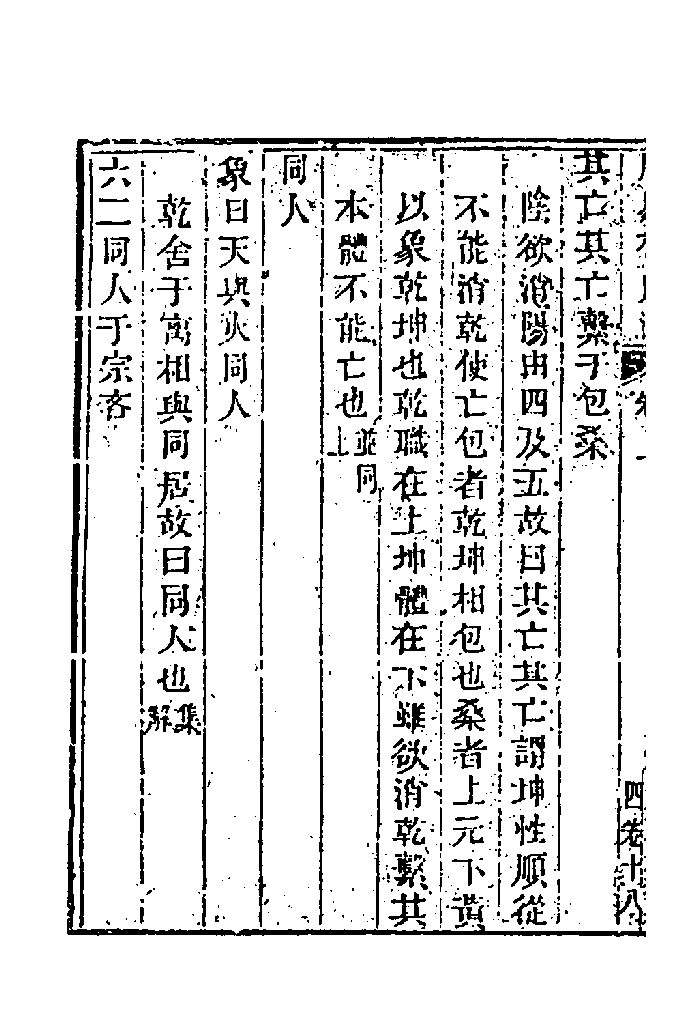 其亡其亡繫于包桑
陰欲消陽由四及五故曰其亡其亡謂坤性順從
不能消乾使亡包者乾坤相包也桑者上元下黄
以象乾坤也乾職在上坤體在下雖欲消乾繫其
本體不能亡也並同上
同人
象曰天與火同人
乾舍于离相與同居故曰同人也集解
六二同人于宗吝
四卷十八